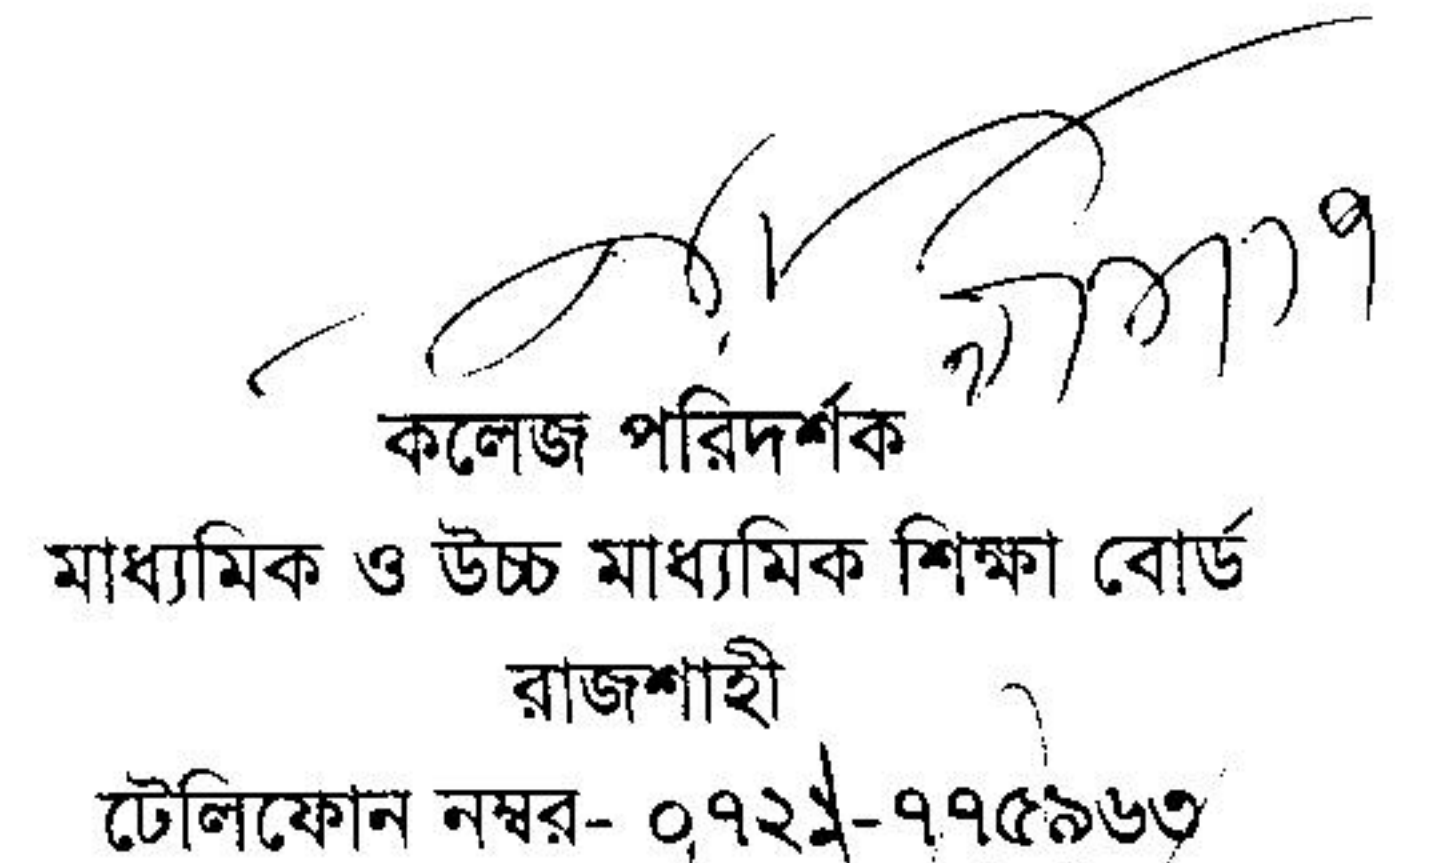 কলেজ পরিদর্শক
মাধ্যমিক ও উচ্চ মাধ্যমিক শিক্ষা বোর্ড
রাজশাহী
টেলিফোন নম্বর- ০৭২১-৭৭৫৯৬৩